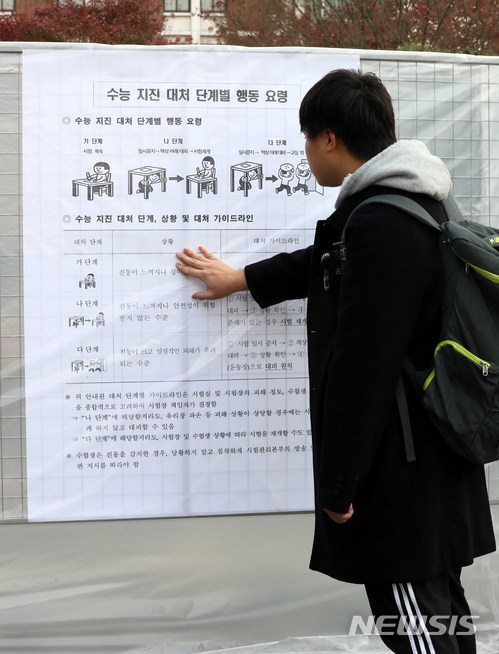 수능 지진 대처 단계별 행동 요령
수능 지진 대처 단계별 행동 요령
가 단계 나 단계 다 단계
시험 계속 일시중지 → 책상 아래 대피 → 시험재개 일시중지 → 책상 아래 대피 → 교실 밖
수능 지진 대처 단계, 상황 및 대처 가이드라인
대처 단계 상황 대처 가이드라인
가 단계
진동이 느껴지나
나 단계
진동이 느껴지나 안전성이 위협
받지 않는 수준
① 시험
대피 → ③ 상황 확인 → ④
문제가 없는 경우 시험 재개
다 단계
진동이 크고 실질적인 피해가 우려
되는 수준
① 시험 일시 중지 → ② 책상
대피 → ③ 상황 확인 → ④
(운동장)으로 대피 원칙
※ 위 안내된 대처 단계별 가이드라인은 시험실 및 시험장의 피해 정도, 수험생
을 종합적으로 고려하여 시험장 책임자가 결정함
⇒ "나 단계"에 해당할지라도, 유리창 파손 등 피해 상황이 상당할 경우에는 시
게 하지 않고 대피할 수 있음
⇒ "다 단계"에 해당할지라도, 시험장 및 수험생 상황에 따라 시험을 재개할 수도 있
※ 수험생은 진동을 감지한 경우, 당황하지 말고 침착하게 시험관리본부의 방송
관 지시를 따라야 함
NEWSIS